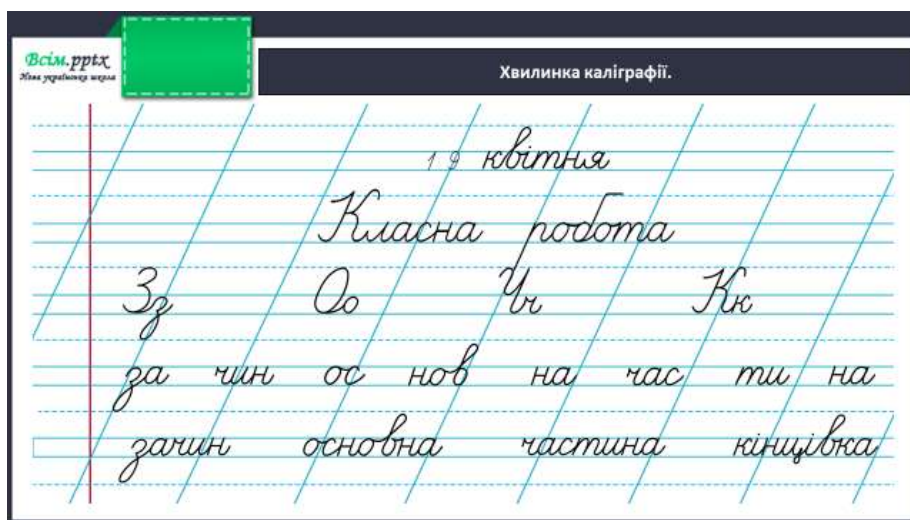 Всім.pptx
Нова українська школа
Хвилинка каліграфії.
19 квітня
Класна робота
Зз Оо Чч Кк
за чин ос нов на час ти на
зачин основна частина кінцівка